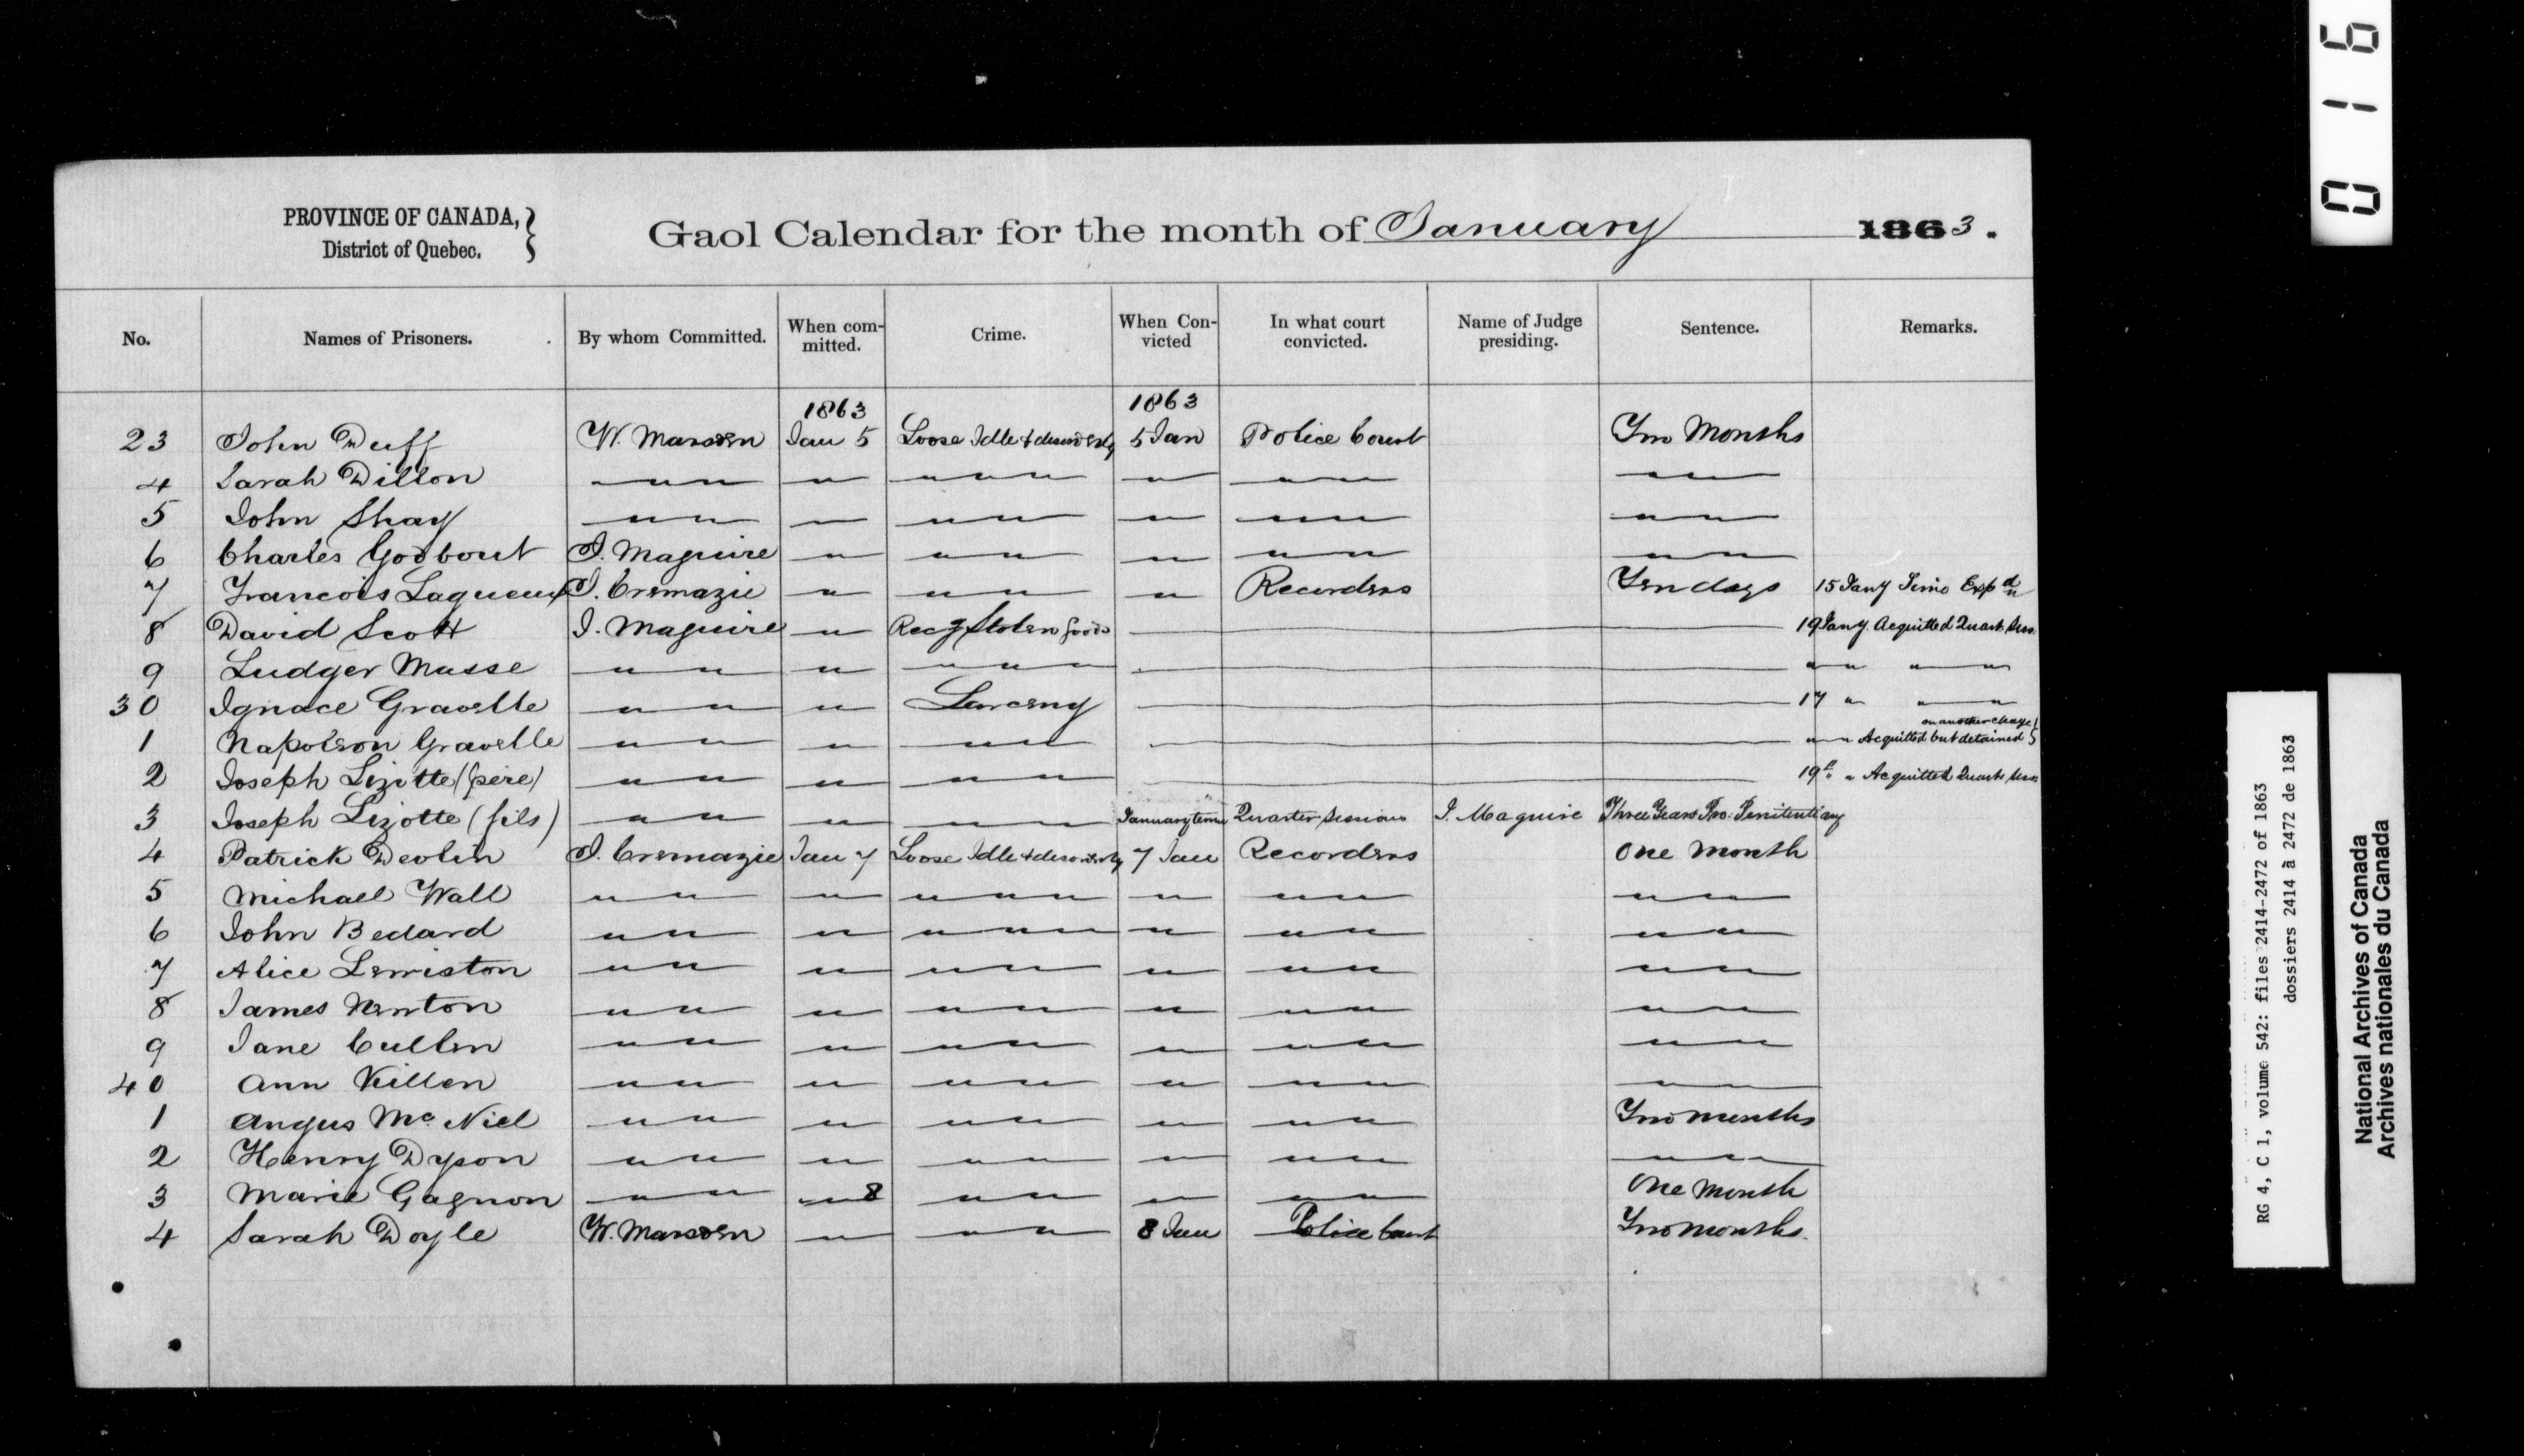 PROVINCE OF CANADA,
District of Quebec.
Gaol Calendar for the month of January 1863.
No. Names of Prisoners. By whom Committed. When committed. Crime. When Convicted In what court convicted. Name of Judge presiding. Sentence. Remarks.
1863 1863
23 John Duff W. Marsden Jan 5 Loose Idle & disorderly 5 Jan Police Court Two Months
4 Sarah Dillon — " " — — " — — " " " — — " — — " " — — " " —
5 John Shay — " " — — " — — " " — — " — — " " — — " " —
6 Charles Godbout J. Maguire — " — — " " — — " — — " " — — " " —
7 Francois Laqueux J. Cremazie — " — — " " — — " — Recorders Ten days 15 Jany Time Expd
8 David Scott J. Maguire — " — Recg Stolen goods — 19 Jany. Acquitted Quart. Sess.
9 Ludger Masse — " " — — " — — " " " — — " " " "
30 Ignace Gravelle — " " — — " — Larceny — 17 " " "
on another charge
1 Napoleon Gravelle — " " — — " — — " " — — " " Acquitted but detained
2 Joseph Lizotte (père) — " " — — " — — " " — — 19th " Acquitted Quart. Sess
3 Joseph Lizotte (fils) — " " — — " — — " " — January term Quarter Sessions J. Maguire Three Years Pro. Penitentiary
4 Patrick Devlin J. Cremazie Jan 7 Loose Idle & disorderly 7 Jan Recorders One Month
5 Michael Wall — " " — — " — — " " " — — " — — " " — — " " —
6 John Bedard — " " — — " — — " " " — — " — — " " — — " " —
7 Alice Lewiston — " " — — " — — " " — — " — — " " — — " " —
8 James Newton — " " — — " — — " " — — " — — " " — — " " —
9 Jane Cullen — " " — — " — — " " — — " — — " " — — " " —
40 Ann Killen — " " — — " — — " " — — " — — " " — — " " —
1 Angus Mc Niel — " " — — " — — " " — — " — — " " — Two months
2 Henry Dyson — " " — — " — — " " — — " — — " " — — " " —
3 Marie Gagnon — " " — — " 8 — " " — — " — — " " — One Month
4 Sarah Doyle W. Marsden — " — — " " — 8 Jan Police Court Two months.
0 1 6
RG 4, C 1, volume 542: files 2414-2472 of 1863
dossiers 2414 à 2472 de 1863
National Archives of Canada
Archives nationales du Canada